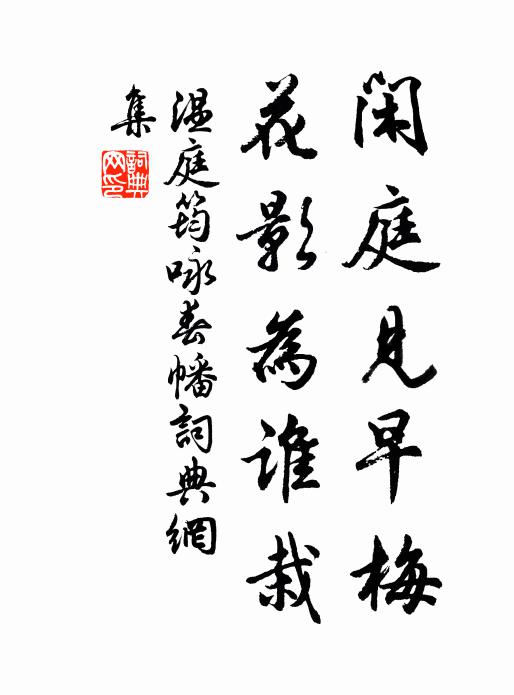 閑庭見早梅
花影為誰栽
溫庭筠咏春幡詞典網
集
詞典網印